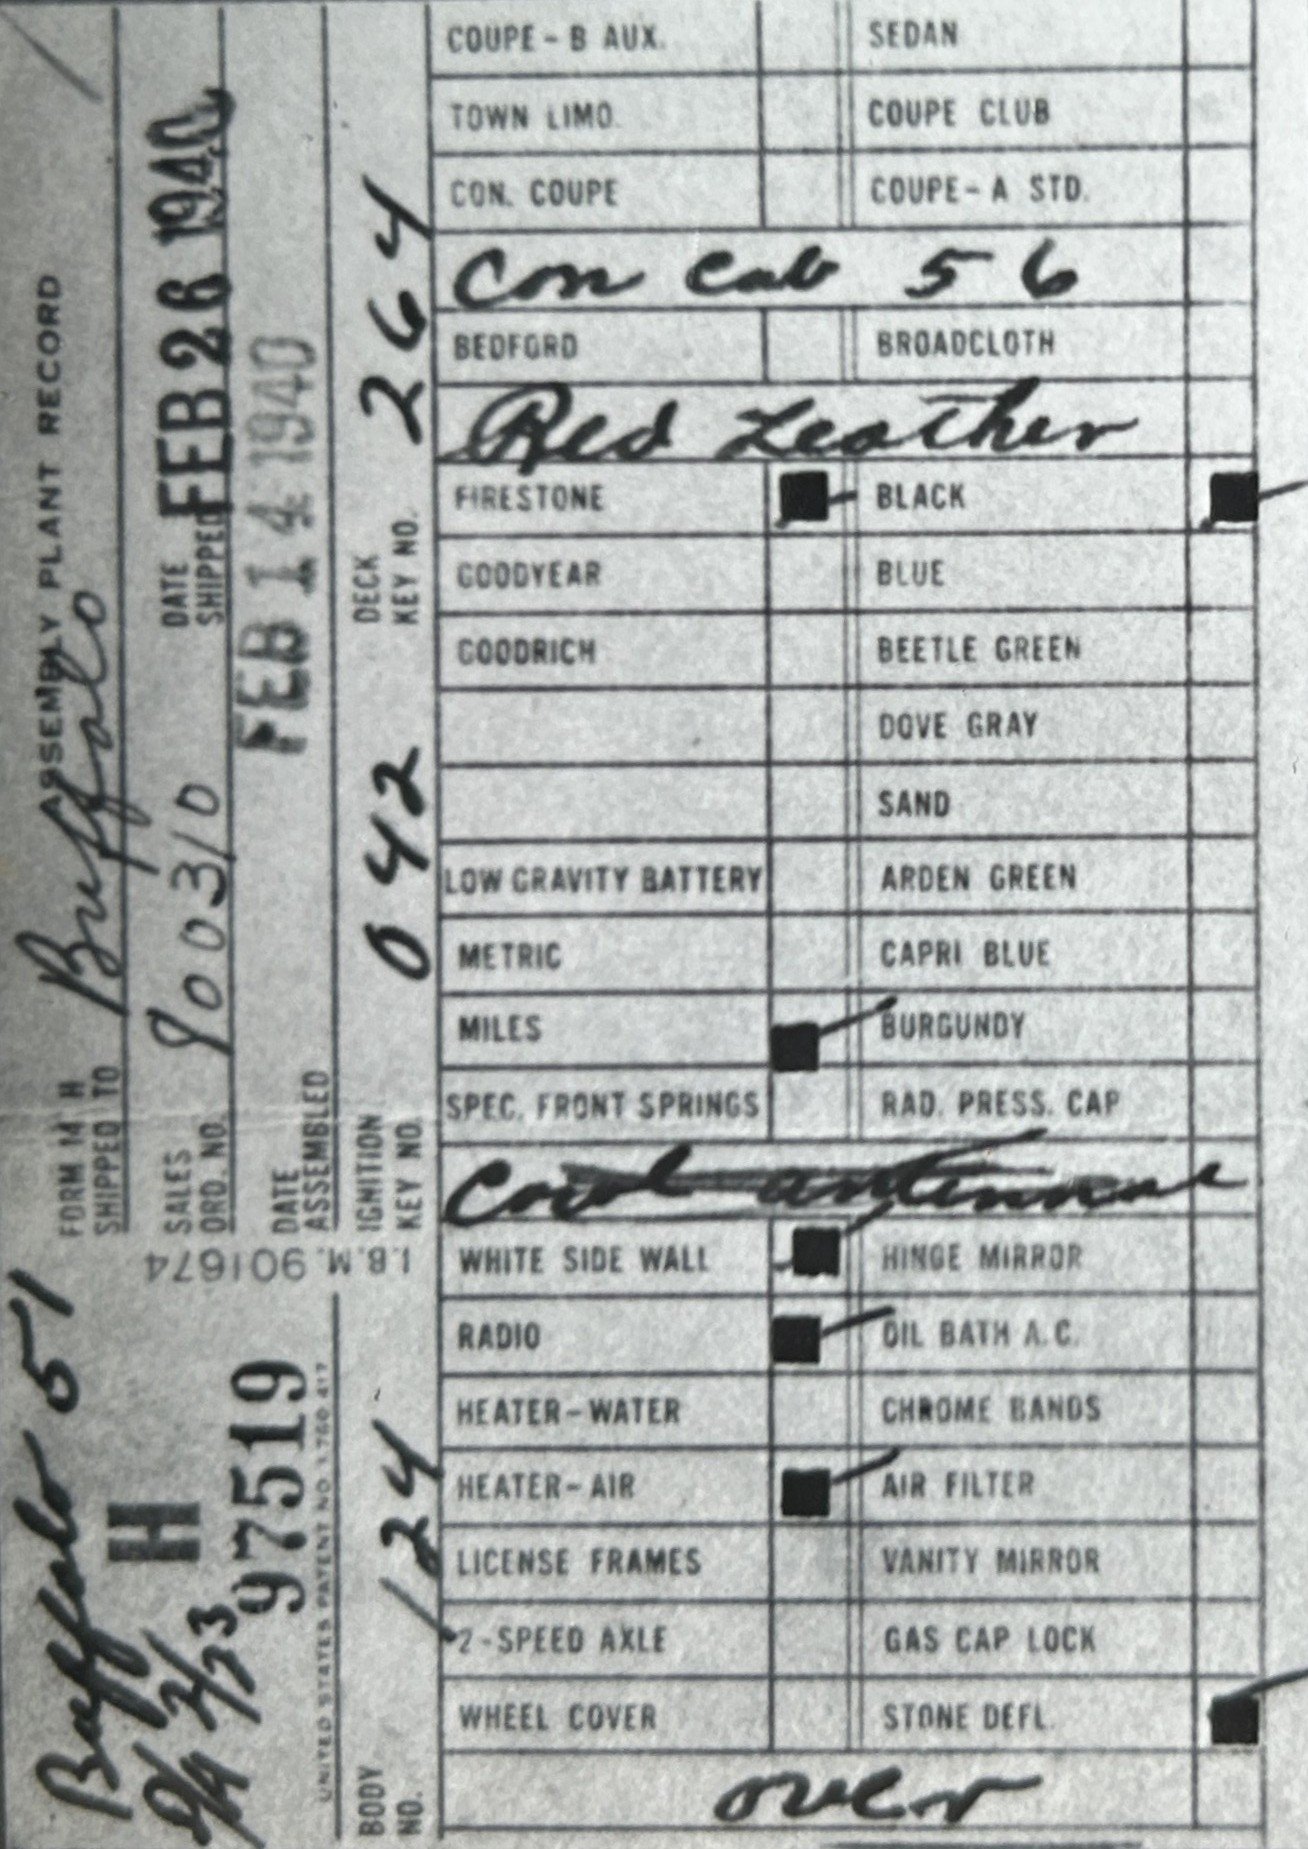 ASSEMBLY PLANT RECORD
FORM 14 H
SHIPPED TO Buffalo
SALES ORD. NO. 900310
DATE SHIPPED FEB 26 1940
DATE ASSEMBLED FEB 14 1940
IGNITION KEY NO. 042
DECK KEY NO. 264
Buffalo 51
2/23
H
97519
I.B.M. 901674
UNITED STATES PATENT NO. 1,760,417
BODY NO. 124
COUPE - B AUX. SEDAN
TOWN LIMO. COUPE CLUB
CON. COUPE COUPE - A STD.
Con Cab 56
BEDFORD BROADCLOTH
Red Leather
FIRESTONE BLACK
GOODYEAR BLUE
GOODRICH BEETLE GREEN
DOVE GRAY
SAND
LOW GRAVITY BATTERY ARDEN GREEN
METRIC CAPRI BLUE
MILES BURGUNDY
SPEC. FRONT SPRINGS RAD. PRESS. CAP
Cowl antennae
WHITE SIDE WALL HINGE MIRROR
RADIO OIL BATH A.C.
HEATER-WATER CHROME BANDS
HEATER-AIR AIR FILTER
LICENSE FRAMES VANITY MIRROR
2-SPEED AXLE GAS CAP LOCK
WHEEL COVER STONE DEFL.
over